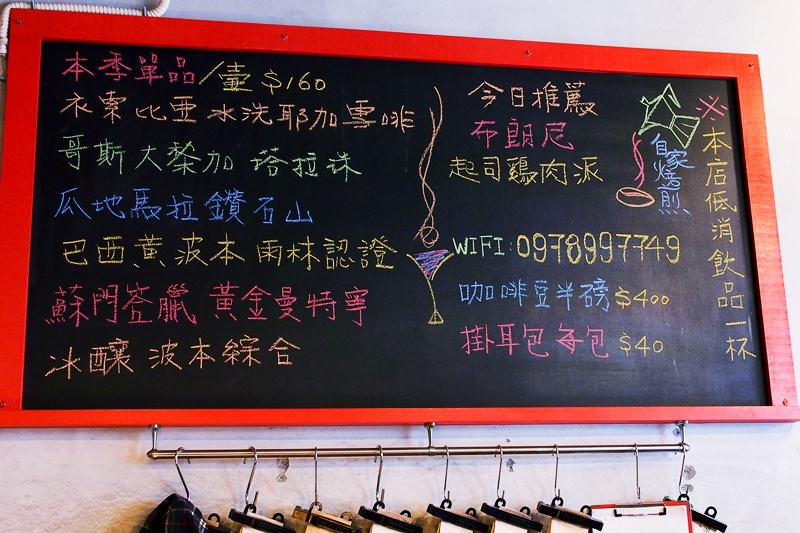 本季單品/壺 $160
衣索比亞 水洗耶加雪啡
哥斯大黎加 塔拉珠
瓜地馬拉鑽石山
巴西黃波本 雨林認證
蘇門答臘 黃金曼特寧
冰釀 波本綜合
今日推薦
布朗尼
起司雞肉派
WIFI:0978997749
咖啡豆半磅 $400
掛耳包每包 $40
自家烘煎
※本店低消飲品一杯